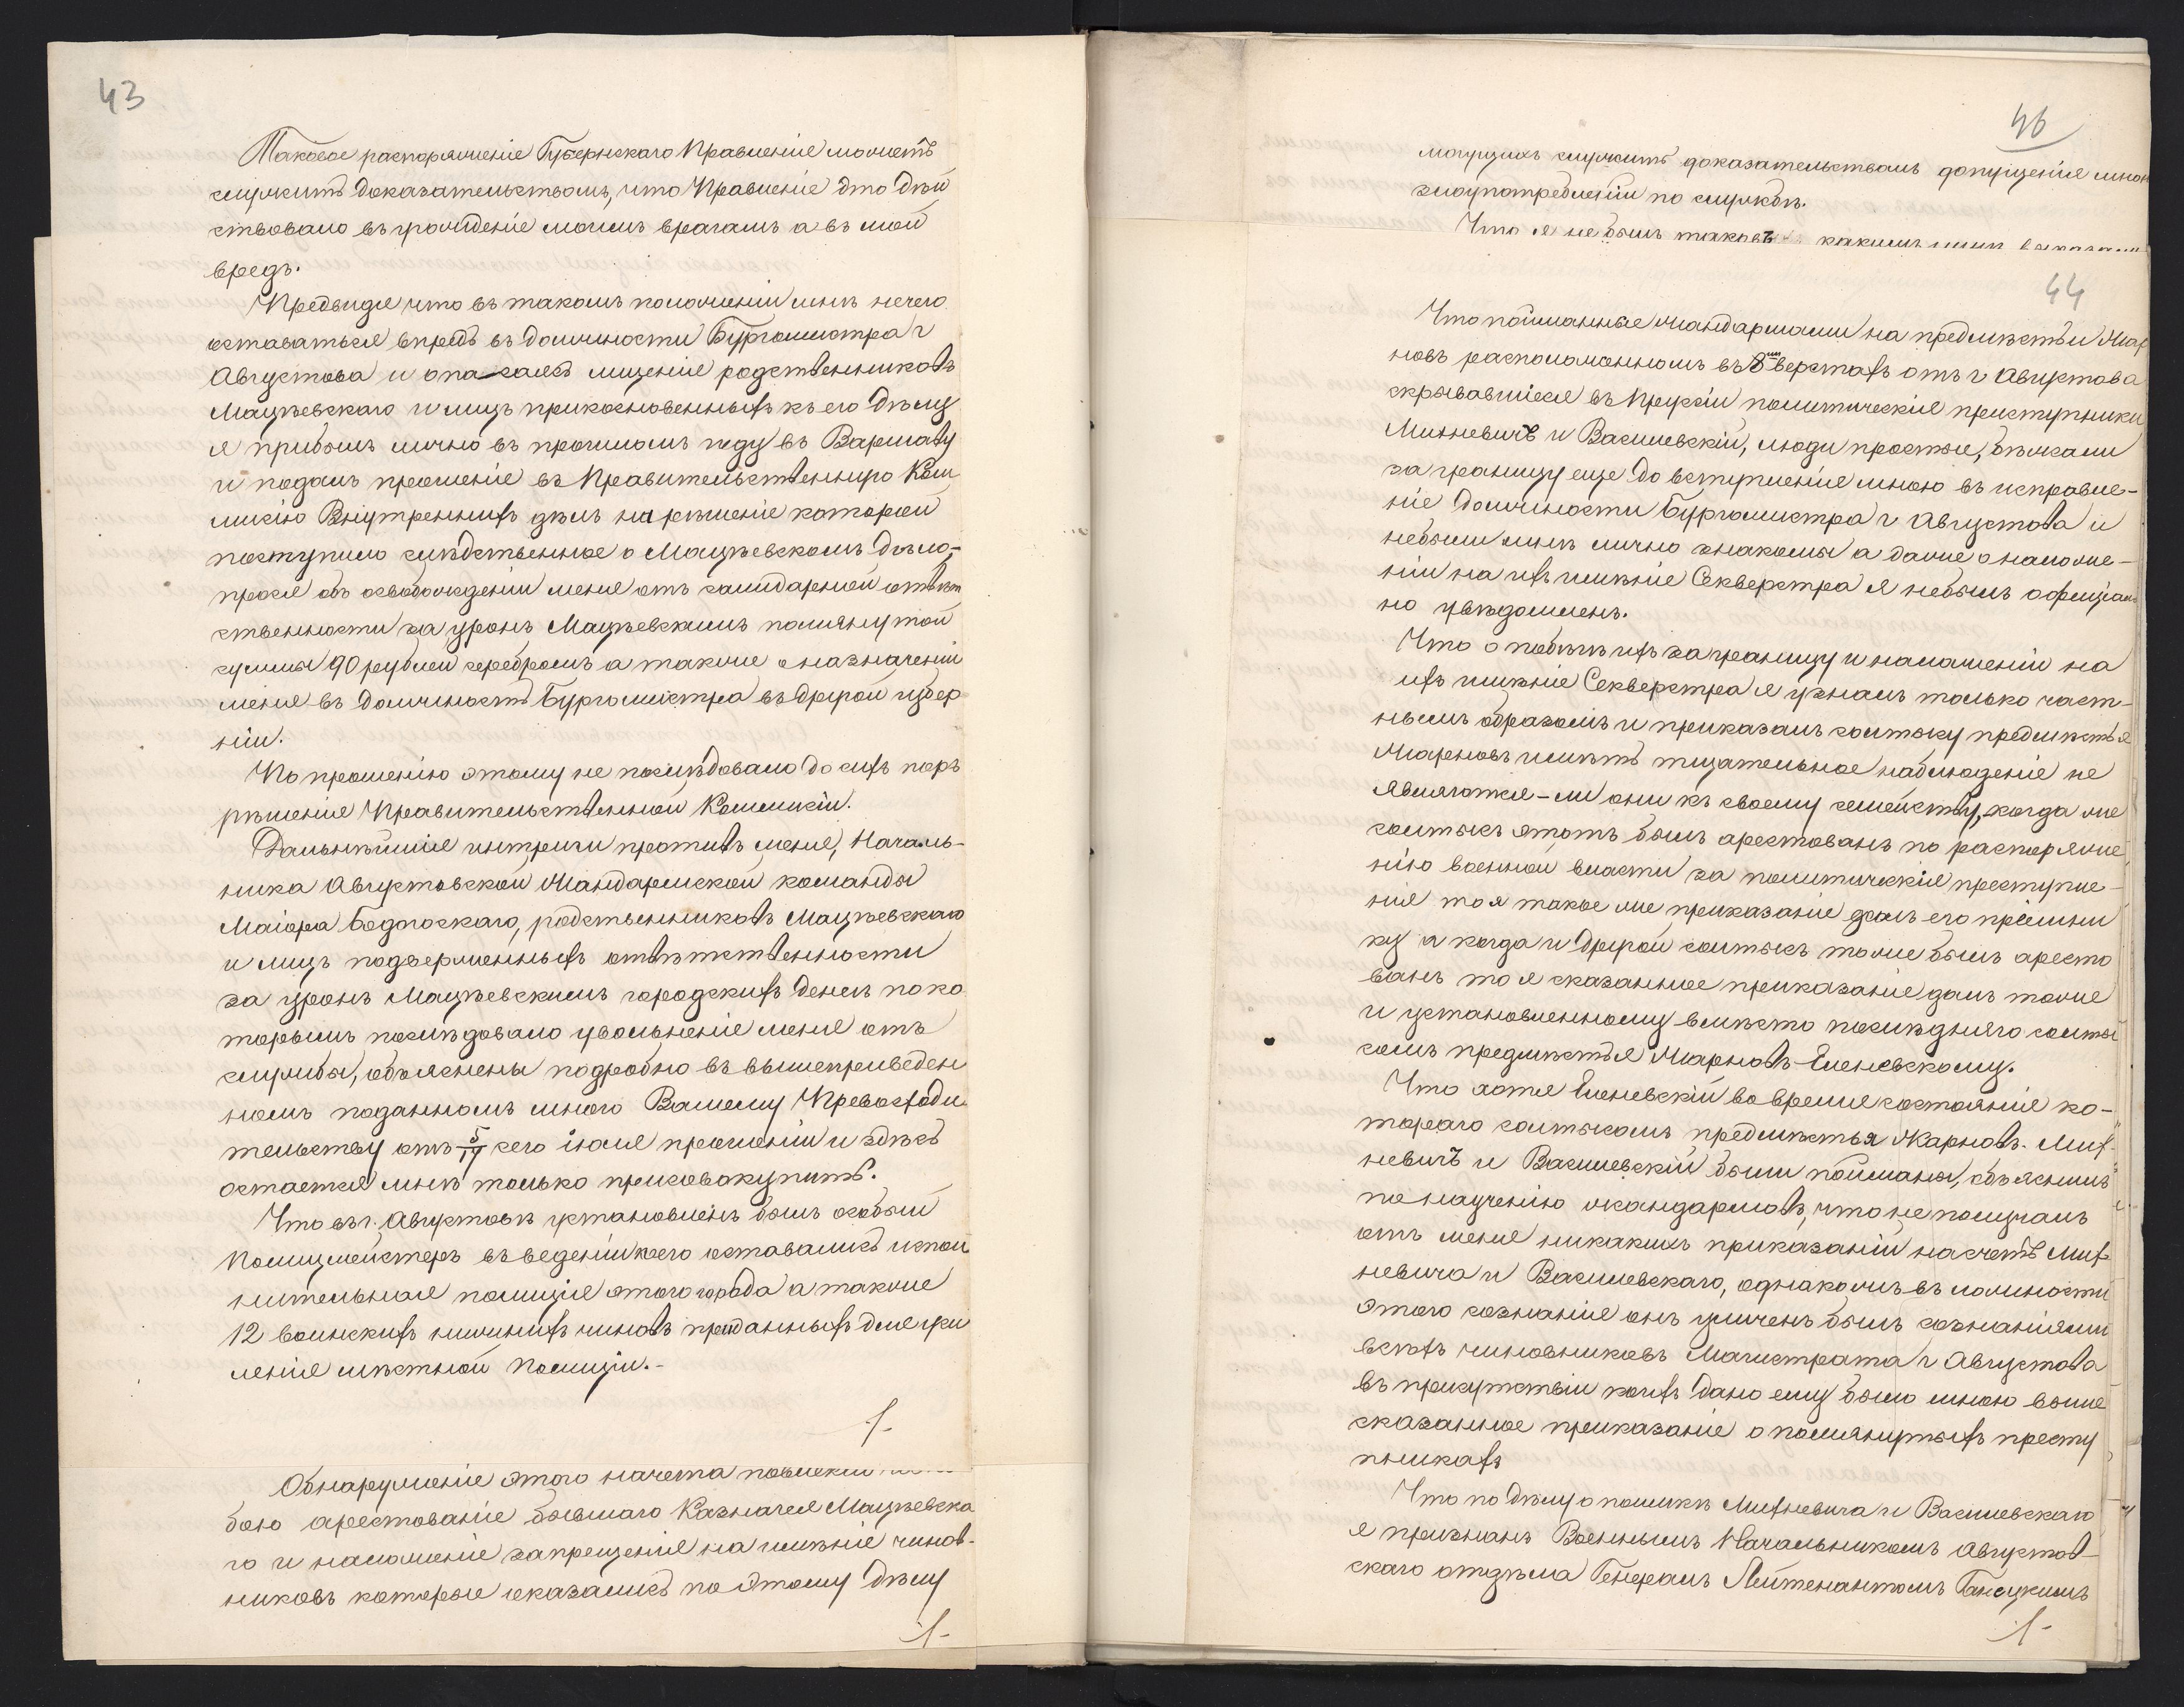 43
Таковое распоряженіе Губернскаго Правленія можетъ
служить доказательствомъ, что Правленіе это дѣй
ствовало въ угожденіе моимъ врагамъ а въ мой
вредъ.
Предвидя что въ такомъ положеніи мнѣ нечего
оставаться впредь въ должности Бургомистра г
Августова и опасаясь мщенія родственниковъ
Мацѣевскаго и лицъ прикосновенныхъ къ его дѣлу
я прибылъ лично въ прошломъ году въ Варшаву
и подалъ прошеніе въ Правительственную Ком
мисію Внутреннихъ дѣлъ на рѣшеніе которой
поступило слѣдственное о Мацѣевскомъ дѣло,-
прося объ освобожденіи меня отъ солидарной отвѣт
ственности за уронъ Мацѣевскимъ помянутой
суммы 90 рублей серебромъ а также о назначеніи
меня въ должность Бургомистра въ другой губер
ніи.
По прошенію этому не послѣдовало до сихъ поръ
рѣшенія Правительственной Коммисіи.
Дальнѣйшія интриги противъ меня, Началь-
ника Августовской Жандармской команды
Маіора Бодогоскаго, родственниковъ Мацѣевскаго
и лицъ подверженныхъ отвѣтственности
за уронъ Мацѣевскимъ городскихъ денегъ по ко
торымъ послѣдовало увольненіе меня отъ
службы, объяснены подробно въ вышеприведен
номъ поданномъ мною Вашему Превосходи
тельству отъ 5/17 сего іюля прошеніи и здѣсь
остается мнѣ только присовокупить.
Что въ г. Августовѣ установленъ былъ особый
Полицмейстеръ въ веденіи коего оставались испол
нительная полиція этого города а также
12 воинскихъ нижнихъ чиновъ приданныхъ для уси
ленія мѣстной Полиціи.-
./.
Обнаруженіе этого начета повлекли
бою арестованіе бывшаго Казначея Мацѣевска
го и наложеніе запрещенія на имѣніе чинов-
никовъ которые оказались по этому дѣлу
./.
46
могущихъ служить доказательствомъ допущенія мною
злоупотребленій по службѣ.
Что я не былъ таковъ какимъ меня
44
Что пойманные жандармами на предмѣстьи Жар
новъ расположенномъ въ 8 верстахъ отъ г Августова
скрывавшіеся въ Пруссіи политическіе преступники
Михневичъ и Василевскій, люди простые, бѣжали
за границу еще до вступленія мною въ исправле-
ніе должности Бургомистра г Августова и
небыли мнѣ лично знакомы а даже о наложе-
ніи на ихъ имѣніе Секвестра я небылъ офиціаль
но увѣдомленъ.
Что о побѣгѣ ихъ заграницу и наложеніи на
ихъ имѣніе Секвестра я узналъ только част-
нымъ образомъ и приказалъ солтысу предмѣстья
Жарновъ имѣть тщательное наблюденіе не
являются-ли они къ своему семейству, когда же
солтысъ этотъ былъ арестованъ по распоряже
нію военной власти за политическія преступле-
нія то я такое же приказаніе далъ его преемни
ку а когда и другой солтысъ тоже былъ аресто
ванъ то я сказанное приказаніе далъ тоже
и установленному вмѣсто послѣдняго солты
сомъ предмѣстья Жарновъ-Еленевскому.
Что хотя Еленевскій во время состоянія ко-
тораго солтысомъ предмѣстья Жарновъ. Мих-
невичъ и Василевскій были пойманы, объяснилъ
по наученію жандармовъ, что не получалъ
отъ меня никакихъ приказаній насчетъ Мих
невича и Василевскаго, однакожъ въ ложности
этого сознанія онъ уличенъ былъ сознаніями
всѣхъ чиновниковъ Магистрата г Августова
въ присутствіи коихъ дано ему было мною выше
сказанное приказаніе о помянутыхъ престу
пникахъ
Что по дѣлу о поимкѣ Михневича и Василевскаго
я признанъ Военнымъ Начальникомъ Августов-
скаго отдѣла Генералъ Лейтенантомъ Ганецкимъ
./.